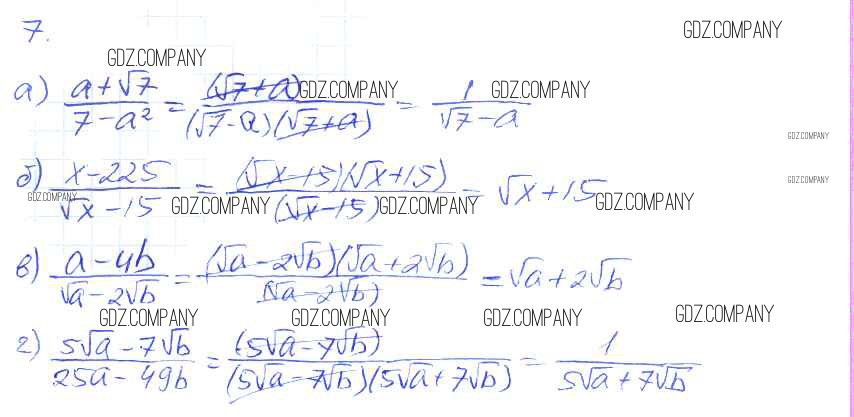 7.
GDZ.COMPANY
GDZ.COMPANY
а) (a+√7)/(7-a²) = (√7+a)/((√7-a)(√7+a)) = 1/(√7-a)
GDZ.COMPANY GDZ.COMPANY
GDZ.COMPANY
б) (x-225)/(√x-15) = (√x-15)(√x+15)/(√x-15) = √x+15
GDZ.COMPANY
GDZ.COMPANY GDZ.COMPANY GDZ.COMPANY GDZ.COMPANY
в) (a-4b)/(√a-2√b) = (√a-2√b)(√a+2√b)/(√a-2√b) = √a+2√b
GDZ.COMPANY GDZ.COMPANY GDZ.COMPANY GDZ.COMPANY
г) (5√a-7√b)/(25a-49b) = (5√a-7√b)/((5√a-7√b)(5√a+7√b)) = 1/(5√a+7√b)